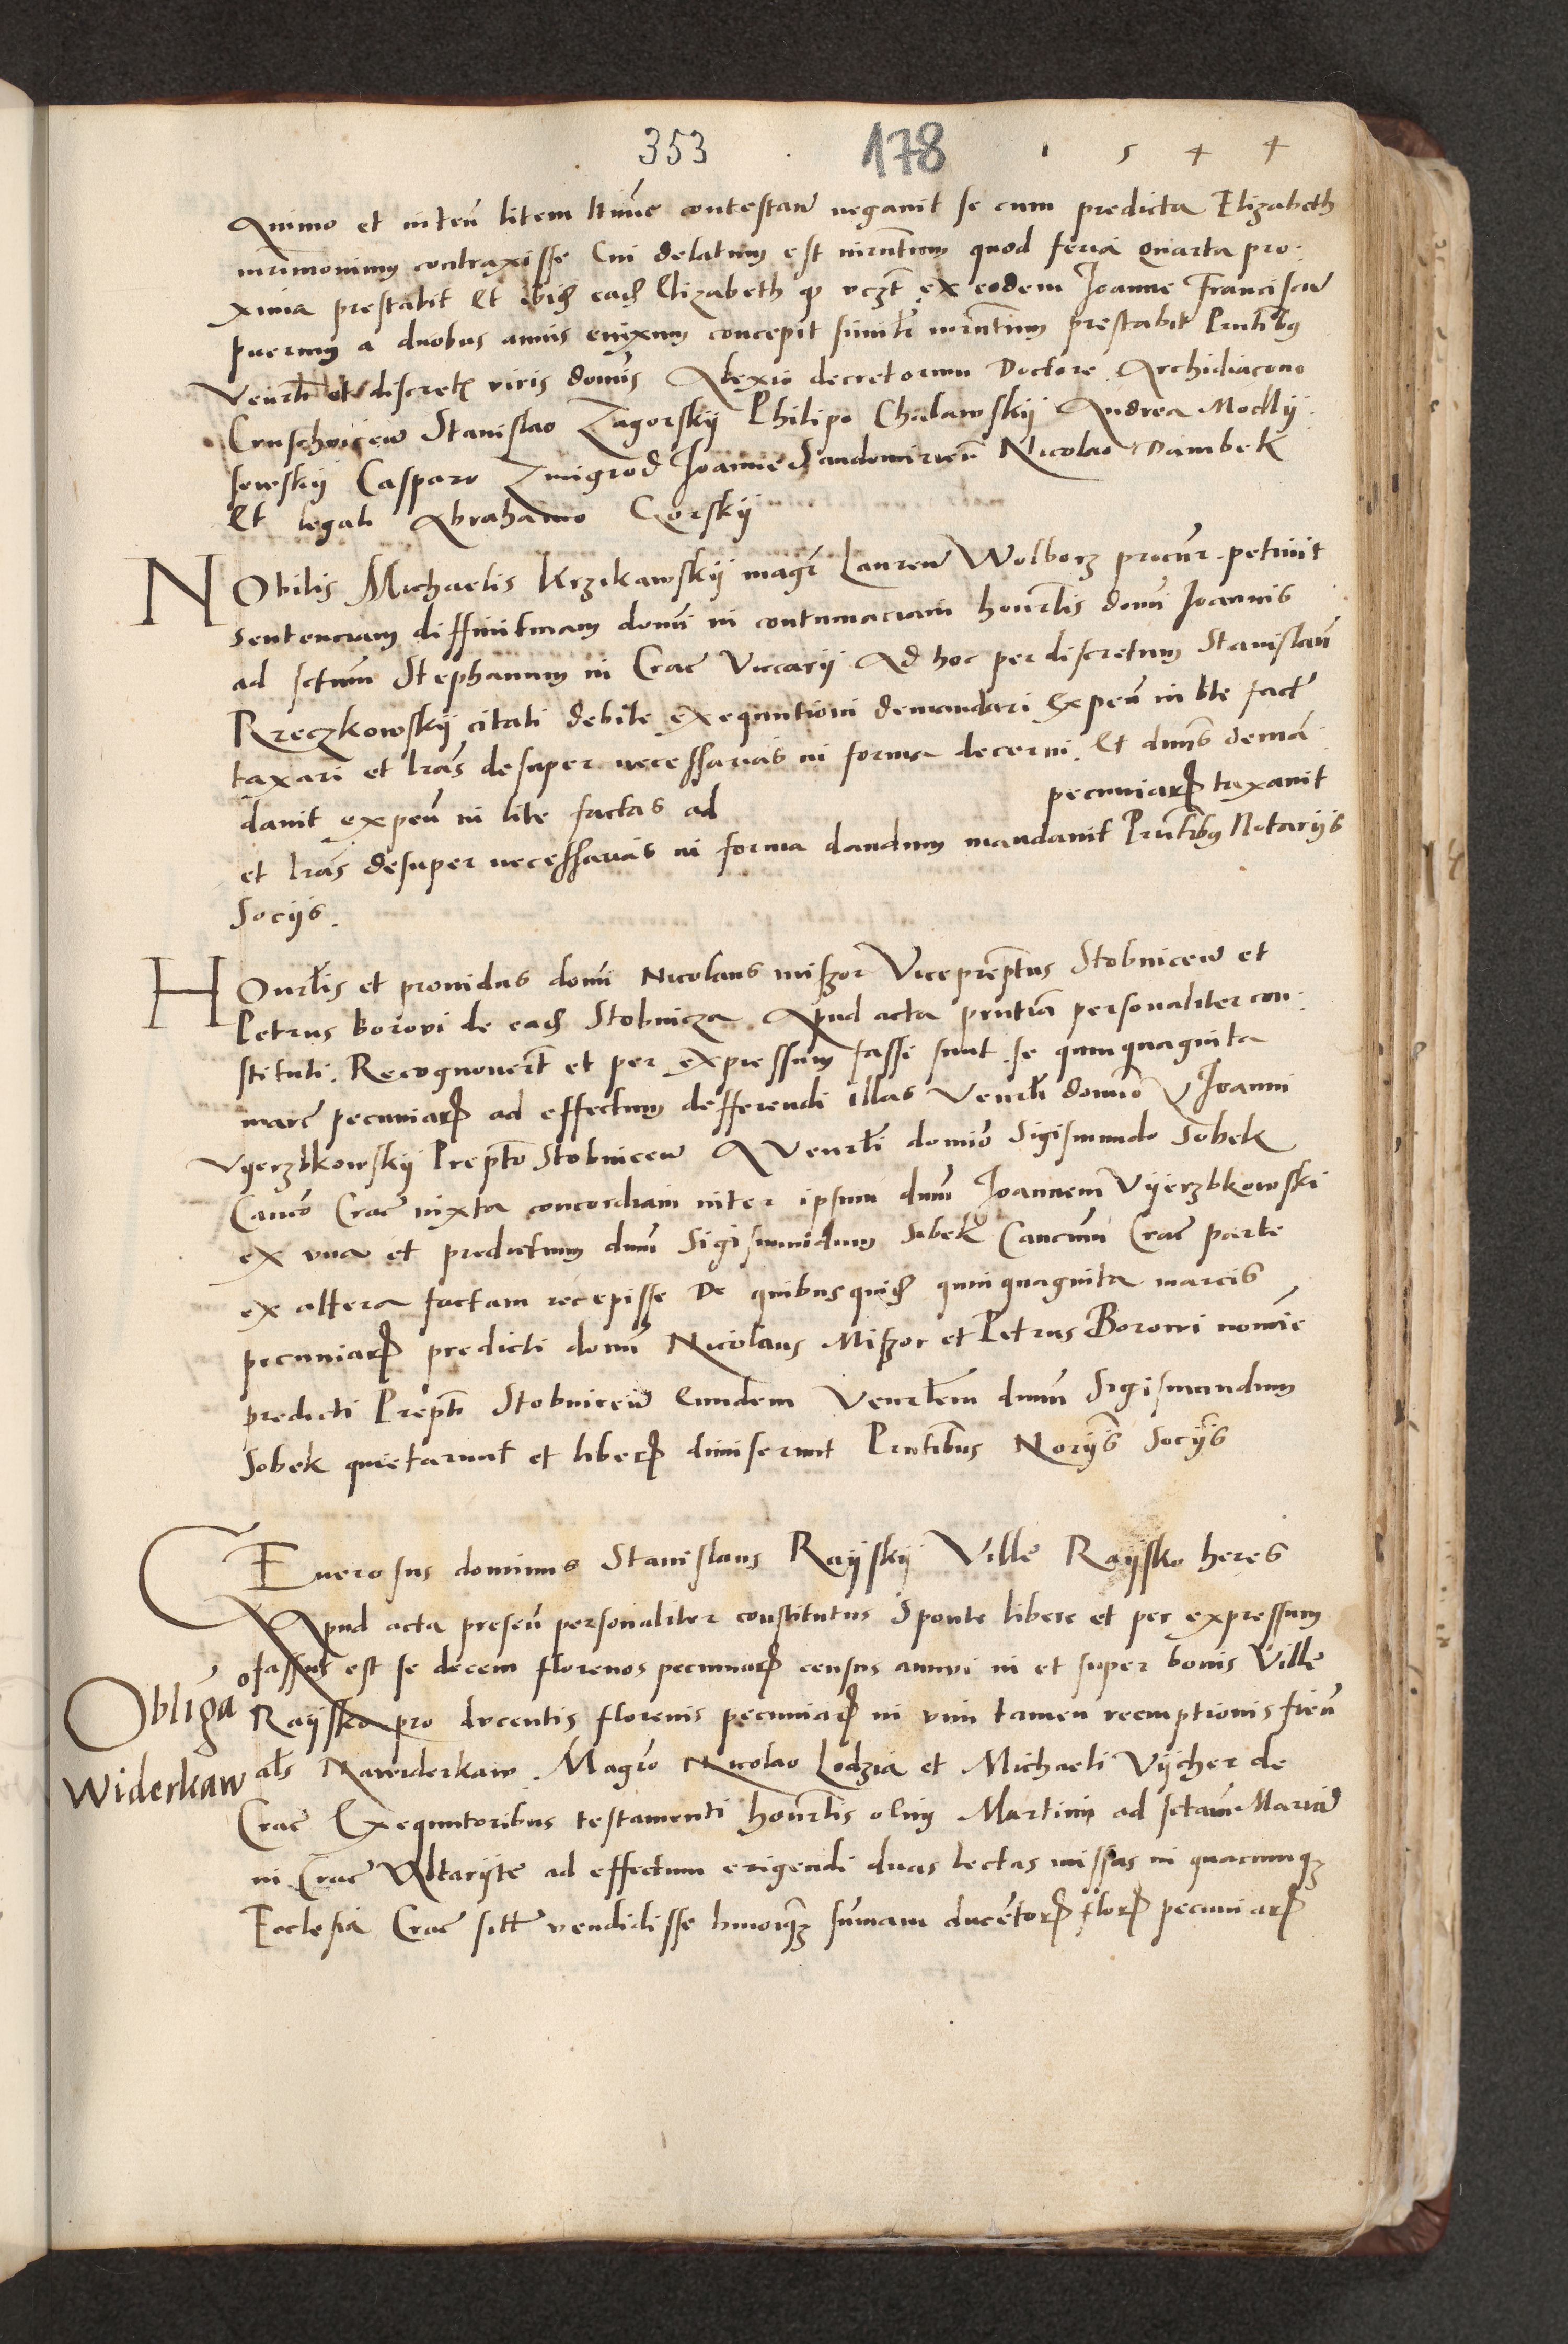 353 178 1 5 4 4
Animo et inten̄ litem ltimē contestan̄ negavit se cum predicta Elizabeth
mr̄imonium contraxisse Cui delatum est iur̄ntum quod feria quarta pro:
xima prestabit Et ibid eadē Elizabeth q vczt ex eodem Joanne Franciscū
puerum a duobus annis enixum concepit simil̄r iur̄ntum prestabit Pn̄tibus
Ven̄rli et discret viris domīs Alexio decretorum Doctore Archidiacono
Cruschvicen̄ Stanislao Zagorskij Philipo Chalawskij Andrea Modlij:
sewskij Casparo Zmigrod Joanne Sandomirien̄ Nicolao Dambek
Et legali Abrahamo Gorskij
NObilis Michaelis Krzikawskij magr̄ Lauren̄ Wolborz procur̄. petivit
sententiam diffinitivam domī in contumaciam honr̄lis domī Joannis
ad sctum̄ Stephanum in Crac̄ Viccarij Ad hoc per discretum Stanislaū
Rreczkowskij citati debite exequutioni demandari Expen̄ in lite fact̄
taxari et lrās desuper necessarias in forma decerni. Et dnn̄s demā
davit expen̄ in lite factas ad pecuniarꝝ taxavit
et lrās desuper necessarias in forma dandum mandavit Prn̄tibus Notarijs
Socijs.
HOnr̄lis et providus domī Nicolaus miszor Viceprep̄tus Stobnicen̄ et
Petrus borovi de eadē Stobnicza Apud acta prn̄tia personaliter con:
stituti. Recognover̄t et per expressum fassi sunt se quinquaginta
marc̄ pecuniarꝝ ad effectum defferendi illas Venr̄li domīo Joanni
Vijerzbkowskij Prep̄to Stobnicen̄ A Venr̄li domīo Sigismundo Sobek
Canco̅ Crac̄ iuxta concordiam inter ipsum dnum̄ Joannem Vijerzbkowski
ex una et predictum dnum̄ Sigismundum Sobek Cancum̄ Crac̄ parte
ex altera factam recepisse De quibusquid quinquaginta marcis
pecuniarꝝ predicti domī Nicolaus Miszor et Petrus Borowi nomīe
predicti Prep̄ti Stobnicen̄ Eundem Venr̄lem dnum̄ Sigismundum
Sobek quietarunt et liberꝝ dimiserunt Prn̄tibus Norijs̄ Socijs̄
GEnerosus dominus Stanislaus Raijskij Ville Raijsko heres
Apud acta presen̄ personaliter constitutus Sponte libere et per expressum
fassus est se decem florenos pecuniarꝝ census annui in et super bonis Ville
Obliga͞o Raijsko pro ducentis florenis pecuniarꝝ in vim tamen reemptionis fien̄
Widerkaw al̄s Nawiderkaw. Magro̅ Nicolao Lodzia et Michaeli Vijcher de
Crac̄ Exequutoribus testamenti honr̄lis olim Martini ad sctam̄ Mariā
in Crac̄ Altarijte ad effectum erigendi duas lectas missas in quacunqꝫ
Ecclesia Crac̄ sitt̄ vendidisse hmoiqꝫ summam ducentorꝝ florꝝ pecuniarꝝ